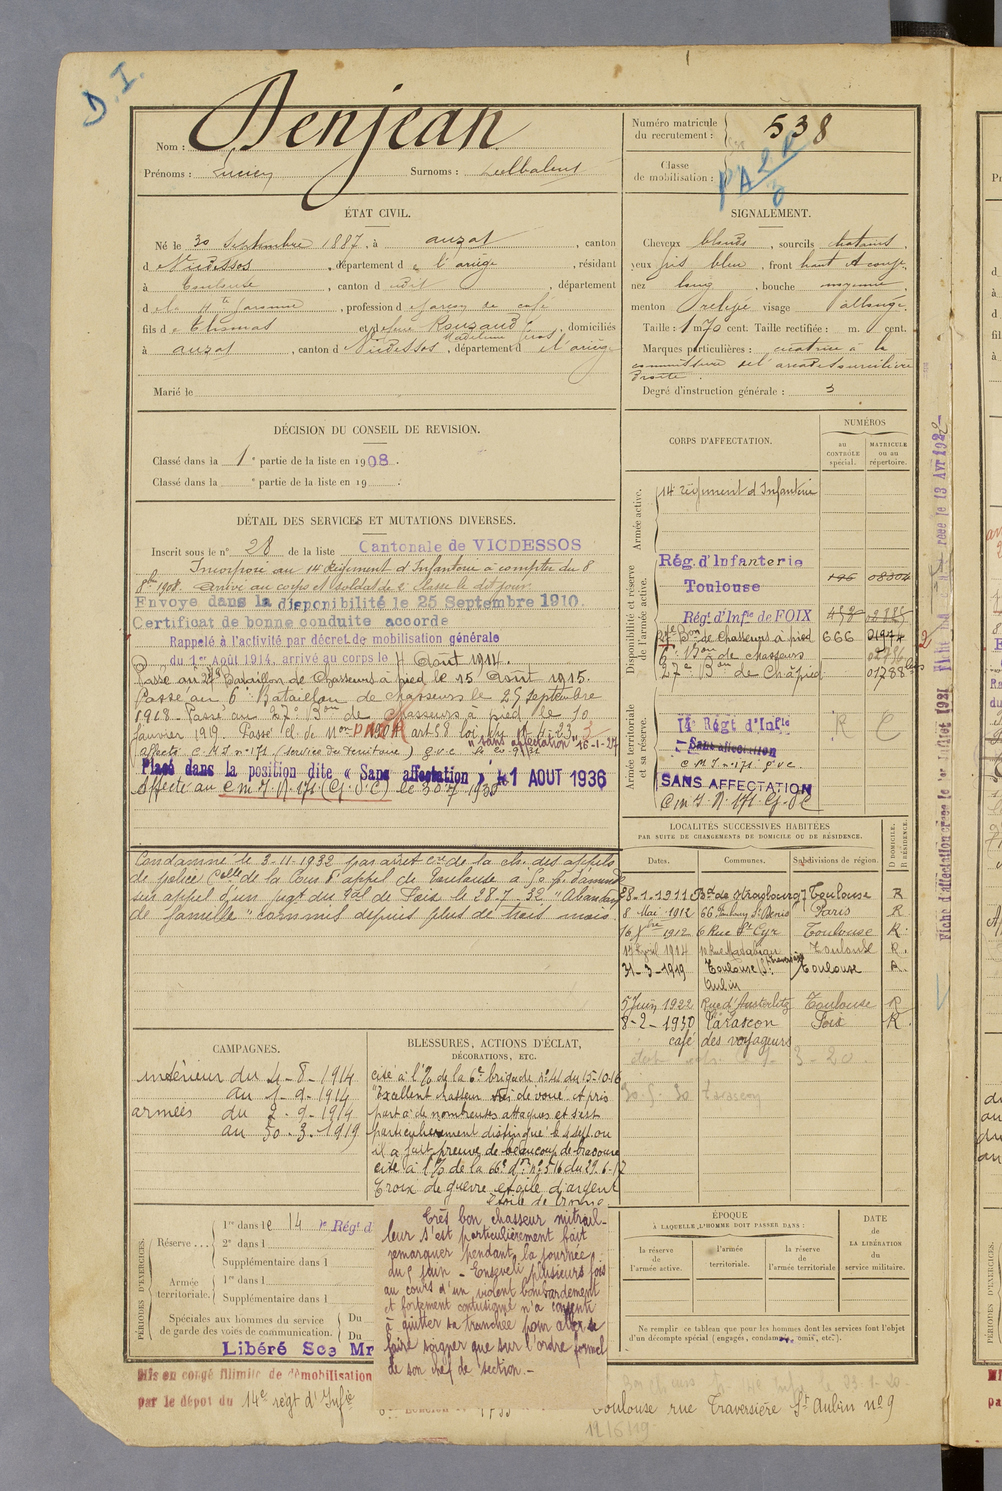 D. I.
Nom : Denjean
Prénoms : Lucien Surnoms :
Numéro matricule du recrutement : 538
Classe de mobilisation :
ÉTAT CIVIL.
Né le 30 Septembre 1887, à auzat, canton
de Vicdessos, département de l'ariège, résidant
à Toulouse, canton d udit, département
de la Hte Garonne, profession de garçon de café
fils de Thomas et de feue Rouzaud Madeleine, domiciliés
à auzat, canton de Vicdessos, département de l'ariège
Marié le
SIGNALEMENT.
Cheveux blonds, sourcils chatains,
yeux gris bleu, front haut
nez long, bouche moyenne,
menton relevé visage allongé.
Taille : 1 m 70 cent. Taille rectifiée : m. cent.
Marques particulières : cicatrice à la
commissure de l'arcade sourcilière
droite.
Degré d'instruction générale : 3
DÉCISION DU CONSEIL DE REVISION.
Classé dans la 1e partie de la liste en 1908.
Classé dans la e partie de la liste en 19 .
DÉTAIL DES SERVICES ET MUTATIONS DIVERSES.
Inscrit sous le n° 28 de la liste Cantonale de VICDESSOS
Incorporé au 14 Régiment d'Infanterie à compter du 8
8bre 1908. Arrivé au corps et soldat de 2e classe le dit jour
Envoyé dans la disponibilité le 25 Septembre 1910.
Certificat de bonne conduite accordé
Rappelé à l'activité par décret de mobilisation générale
du 1er Août 1914, arrivé au corps le 4 Août 1914.
Passé au Bataillon de Chasseurs à pied le 15 Août 1915.
Passé au 6e Bataillon de chasseurs le 25 septembre
1918. Passé au 27e Bon de chasseurs à pied le 10
janvier 1919. Passé
affecté C M J n° 171 (service du territoire) g.v.c. "sans affectation" 16-1-27
Placé dans la position dite « Sans affectation » le 1 AOUT 1936
Affecté au C.M.J.N.171 (G.V.C) le 30.7.1930
Condamné le 3-11-1932 par arrêt cre de la ch. des appels
de police Celle de la Cour d'appel de Toulouse à 50 f. d'amende
sur appel d'un jugt du Bal de Foix le 28-7-32, "Abandon
de famille" commis depuis plus de trois mois.
CORPS D'AFFECTATION.
NUMÉROS
au CONTRÔLE spécial.
MATRICULE ou au répertoire.
Armée active.
14 régiment d'Infanterie
Disponibilité et réserve de l'armée active.
Rég. d'Infanterie
Toulouse
Régt d'Infie de FOIX
Bon de Chasseurs à pied 666 01974
6e Bon de chasseurs
27e Bon de Ch à pied 01788
Armée territoriale et sa réserve.
14e Régt d'Infie R C
Sans affectation
C M J. n° 171. g.v.c.
SANS AFFECTATION
C.M.J.N.171.G.V.C
Fiche d'affectation créée le 1er Juillet 1921
LOCALITÉS SUCCESSIVES HABITÉES
PAR SUITE DE CHANGEMENTS DE DOMICILE OU DE RÉSIDENCE.
Dates. Communes. Subdivisions de région. D DOMICILE. R RÉSIDENCE.
28-1-1911 Bd de Strasbourg 7 Toulouse R
8 Mai 1912 66 Faubourg St Denis Paris R
16 1912 6 Rue St Cyr Toulouse R.
Avril 1914 Toulouse R.
31-3-1919 Toulouse St Aubin Toulouse R.
5 Juin 1922 Rue d'Austerlitz Toulouse R
8-2-1930 Tarascon Foix R.
café des voyageurs
30-5-30 Tarascon
CAMPAGNES.
intérieur du 4-8-1914
au 1-9-1914
armées du 2-9-1914
au 30-3-1919
BLESSURES, ACTIONS D'ÉCLAT,
DÉCORATIONS, ETC.
cité à l'O/ de la 6e brigade n° 41 du 15-10-16
"Excellent chasseur très dévoué. A pris
part à de nombreuses attaques et s'est
particulièrement distingué le 4 sept. ou
il a fait preuve de beaucoup de bravoure
cité à l'O/ de la 66e don n° 516 du 29-6-17
Croix de guerre étoile d'argent
étoile de bronze
Très bon chasseur mitrail-
leur s'est particulièrement fait
remarquer pendant la journée
du 5 juin - Enseveli plusieurs fois
au cours d'un violent bombardement
et fortement contusionné n'a consenti
à quitter sa tranchée pour aller se
faire soigner que sur l'ordre formel
de son chef de section.-
PÉRIODES D'EXERCICES.
Réserve ... 1re dans le 14e Régt d
2e dans l
Supplémentaire dans l
Armée territoriale. 1re dans l
Supplémentaire dans l
Spéciales aux hommes du service de garde des voies de communication. Du
Du
Libéré Sce Mre
ÉPOQUE
À LAQUELLE L'HOMME DOIT PASSER DANS :
la réserve de l'armée active. l'armée territoriale. la réserve de l'armée territoriale
DATE DE LA LIBÉRATION du service militaire.
Ne remplir ce tableau que pour les hommes dont les services font l'objet
d'un décompte spécial (engagés, condamnés, omis, etc.).
Mis en congé illimité de démobilisation
par le dépôt du 14e régt d'Infie
Toulouse rue Traversière St Aubin n° 9